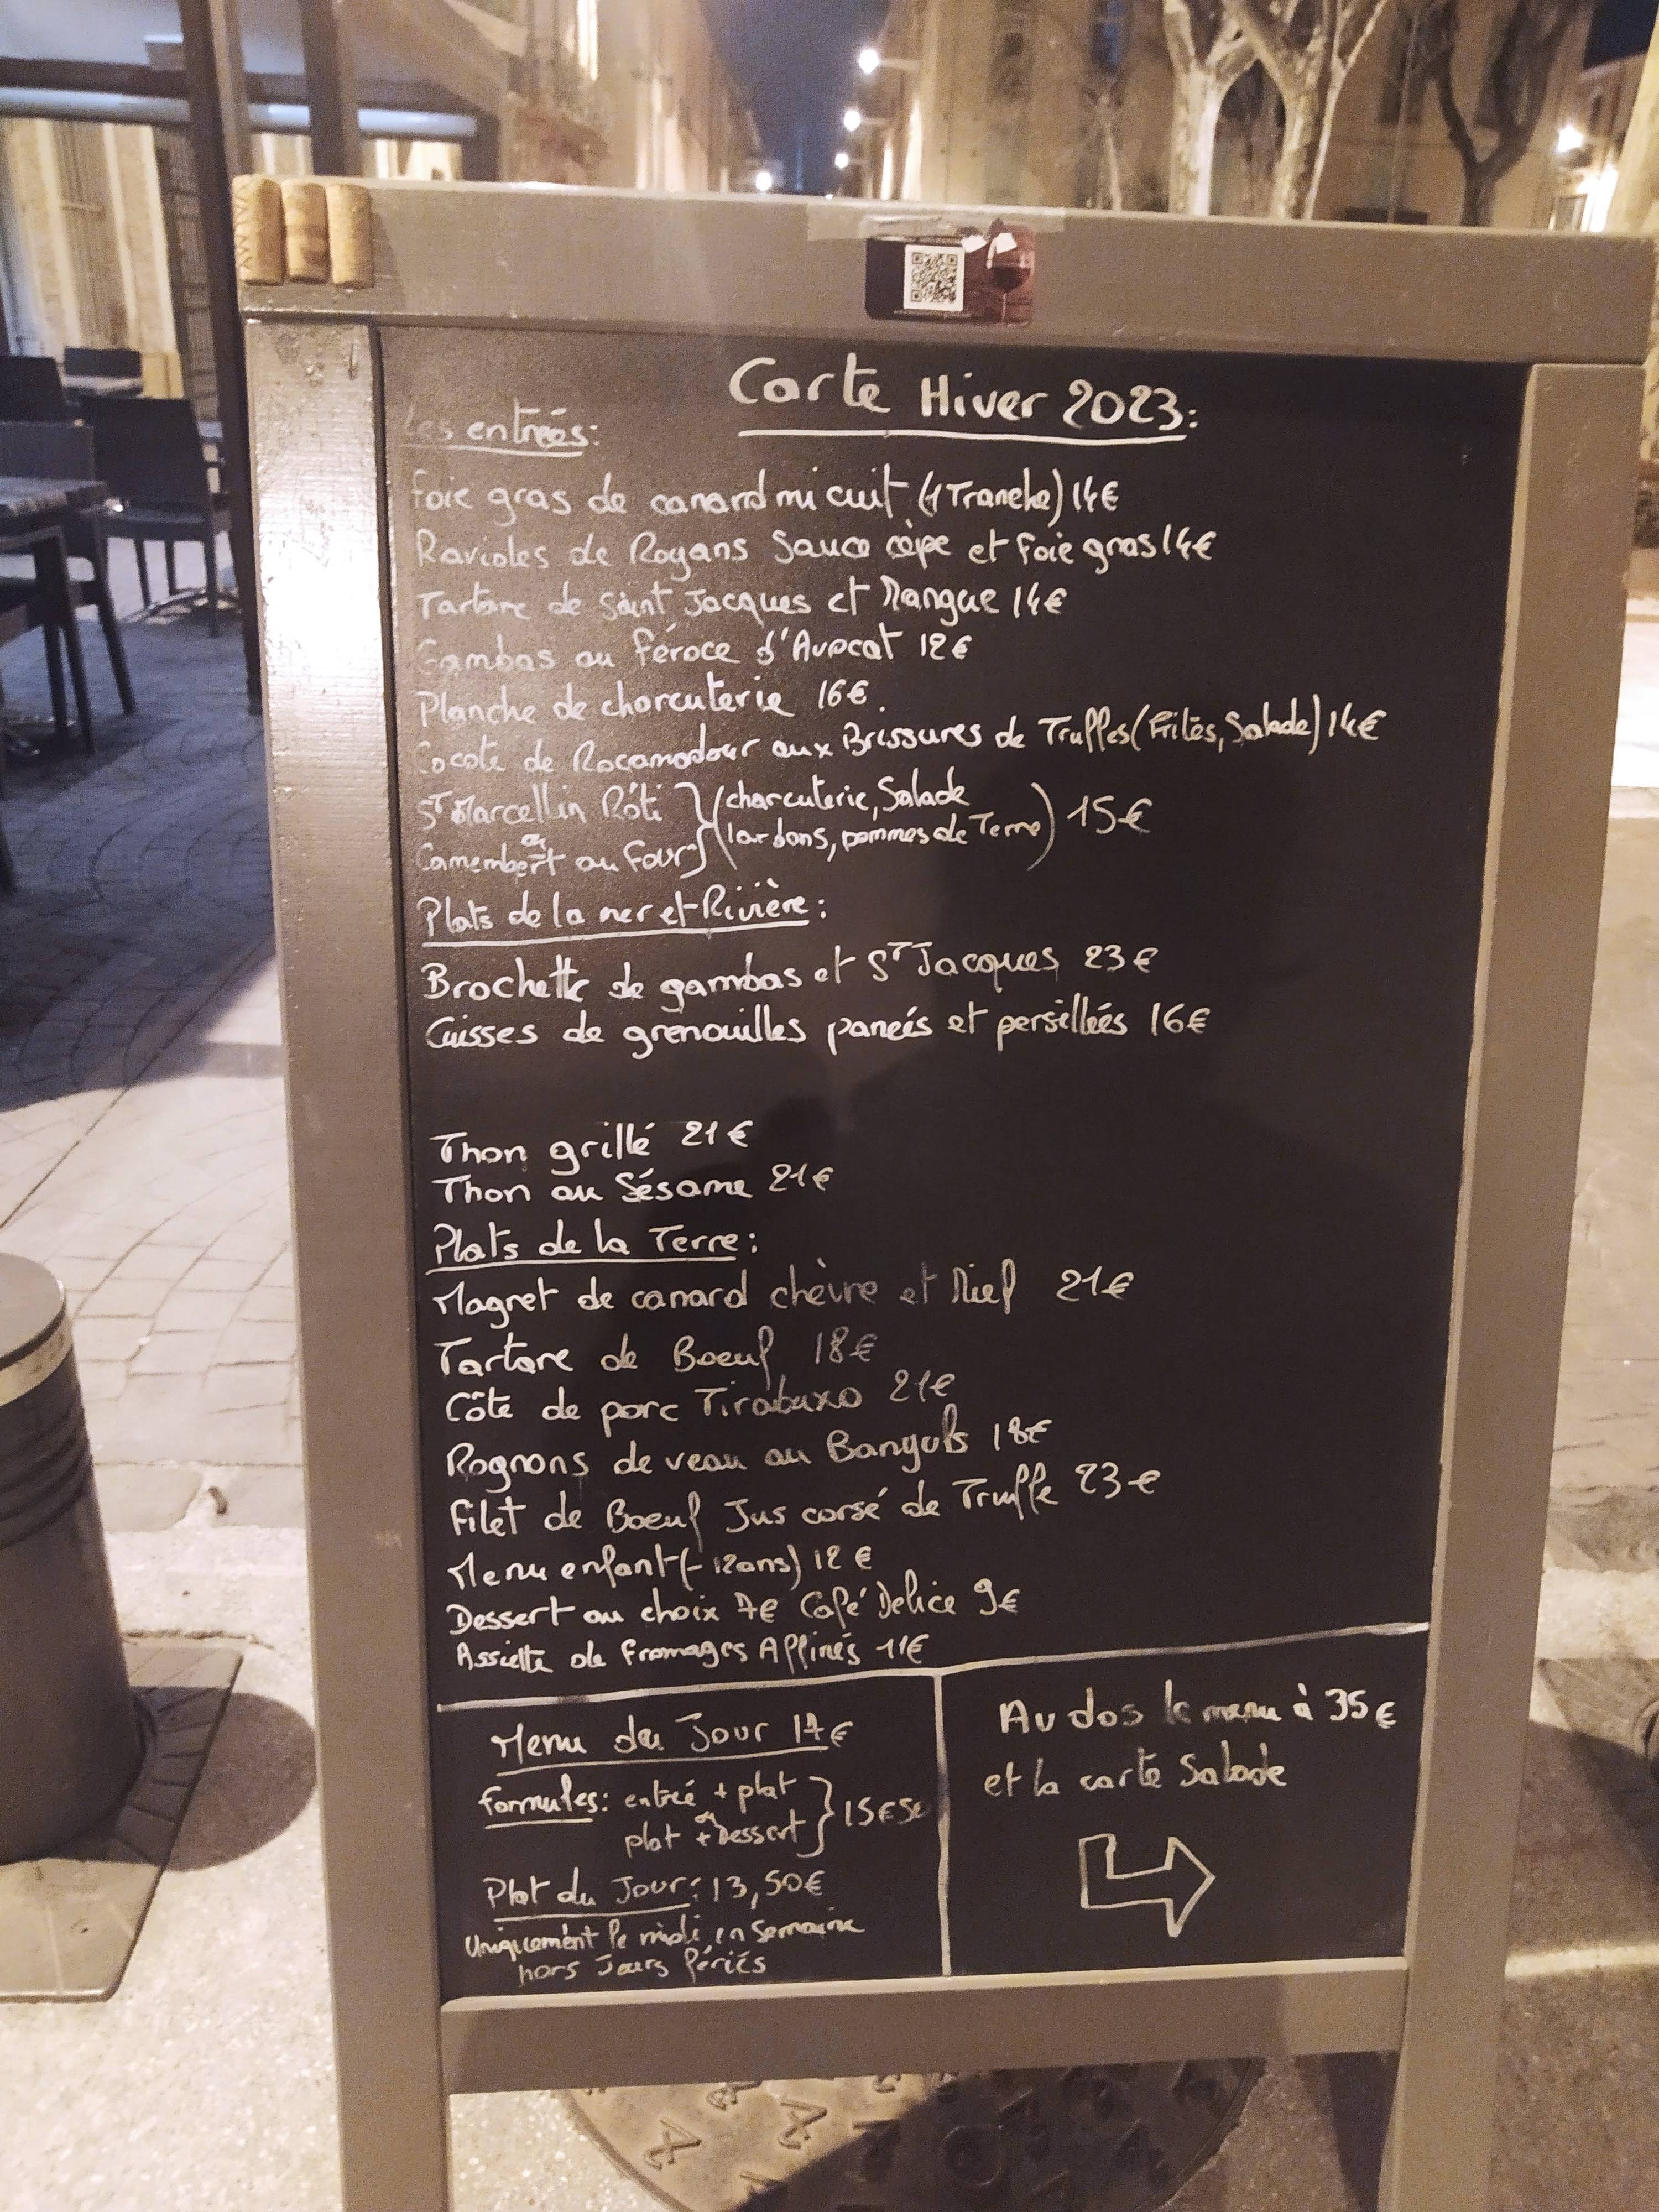 Carte Hiver 2023:
Les entrées:
Foie gras de canard mi cuit (1 Tranche) 14€
Ravioles de Royans Sauce cèpe et foie gras 14€
Tartare de Saint Jacques et Mangue 14€
Gambas au féroce d'Avocat 12€
Planche de charcuterie 16€.
Cocote de Rocamadour aux Brissures de Truffes (Frites, Salade) 14€
St Marcellin Rôti } (charcuterie, Salade
ou
Camembert au four } lardons, pommes de Terre) 15€
Plats de la mer et Rivière:
Brochette de gambas et St Jacques 23€
Cuisses de grenouilles paneés et persilleés 16€
Thon grillé 21€
Thon au Sésame 21€
Plats de la Terre:
Magret de canard chèvre et Miel 21€
Tartare de Boeuf 18€
Côte de porc Tirabuxo 21€
Rognons de veau au Banyuls 18€
Filet de Boeuf Jus corsé de Truffe 23€
Menu enfant (- 12ans) 12€
Dessert au choix 7€ Café Delice 9€
Assiette de Fromages Affinés 11€
Menu du Jour 17€
formules: entreé + plat
ou
plat + Dessert } 15€50
Plat du Jour: 13,50€
Uniquement le midi en Semaine
hors Jours fériés
Au dos le menu à 35€
et la carte Salade